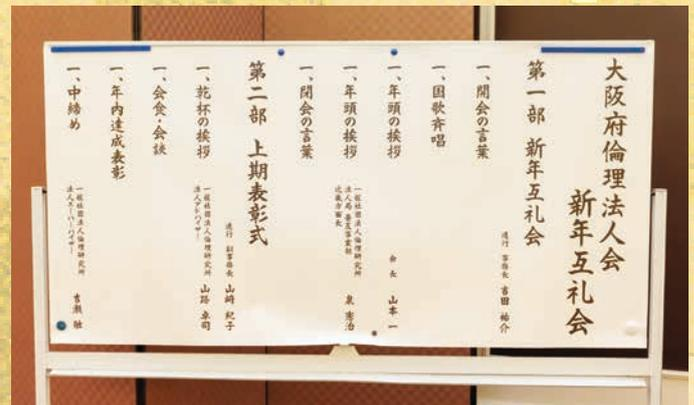 大阪府倫理法人会
新年互礼会
第一部 新年互礼会
進行 事務長 吉田 祐介
一、開会の言葉
一、国歌斉唱
一、年頭の挨拶 会長 山本 一
一、年頭の挨拶 一般社団法人倫理研究所
法人局 普及事業部
近畿方面長 泉 憲治
一、閉会の言葉
第二部 上期表彰式
進行 副事務長 山﨑 紀子
一、乾杯の挨拶 一般社団法人倫理研究所
法人アドバイザー 山路 卓司
一、会食・会談
一、年内達成表彰
一、中締め 一般社団法人倫理研究所
法人スーパーバイザー 吉瀬 融